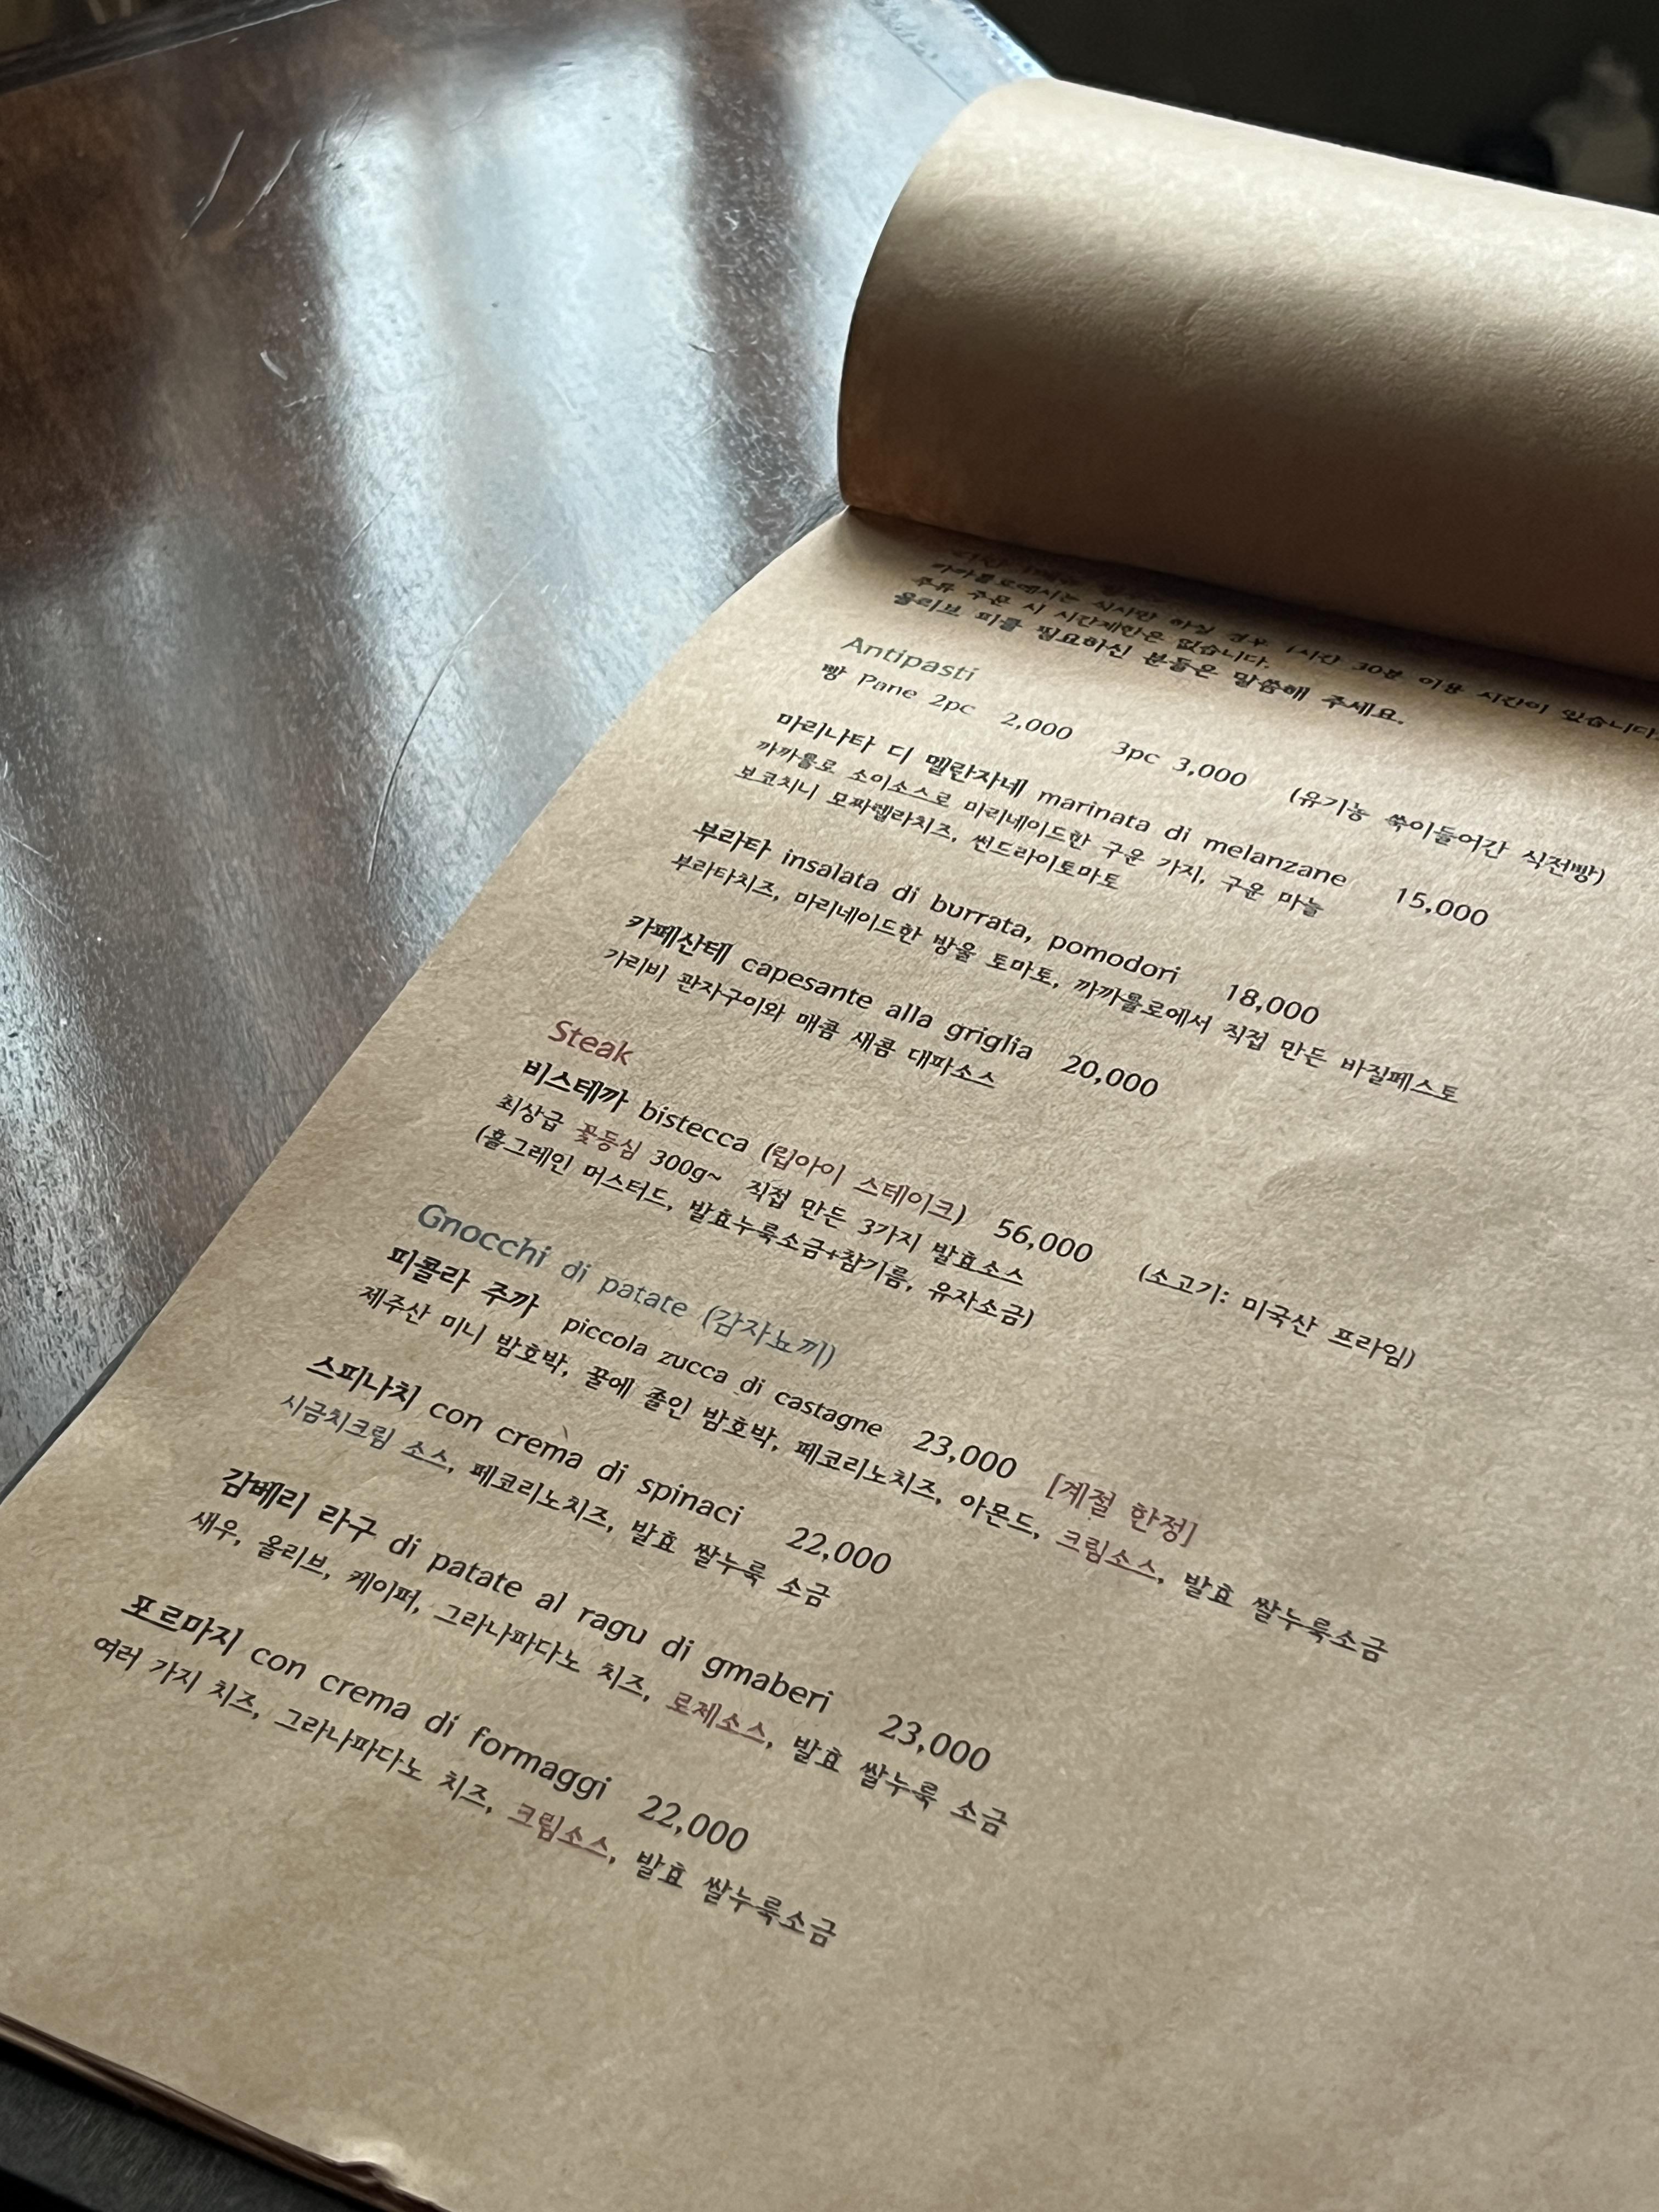 까까뮬로에서는 식사만 하실 경우 1시간 30분 이용 시간이 있습니다.
주류 주문 시 시간제한은 없습니다.
올리브 피클 필요하신 분들은 말씀해 주세요.
Antipasti
빵 Pane 2pc 2,000 3pc 3,000 (유기농 쑥이들어간 식전빵)
마리나타 디 멜란자네 marinata di melanzane 15,000
까까뮬로 소이소스로 마리네이드한 구운 가지, 구운 마늘
보코치니 모짜렐라치즈, 썬드라이토마토
부라타 insalata di burrata, pomodori 18,000
부라타치즈, 마리네이드한 방울 토마토, 까까뮬로에서 직접 만든 바질페스토
카페산테 capesante alla griglia 20,000
가리비 관자구이와 매콤 새콤 대파소스
Steak
비스테까 bistecca (립아이 스테이크) 56,000 (소고기: 미국산 프라임)
최상급 꽃등심 300g~ 직접 만든 3가지 발효소스
(홀그레인 머스터드, 발효누룩소금+참기름, 유자소금)
Gnocchi di patate (감자뇨끼)
피콜라 주까 piccola zucca di castagne 23,000 [계절 한정]
제주산 미니 밤호박, 꿀에 졸인 밤호박, 페코리노치즈, 아몬드, 크림소스, 발효 쌀누룩소금
스피나치 con crema di spinaci 22,000
시금치크림 소스, 페코리노치즈, 발효 쌀누룩 소금
감베리 라구 di patate al ragu di gmaberi 23,000
새우, 올리브, 케이퍼, 그라나파다노 치즈, 로제소스, 발효 쌀누룩 소금
포르마지 con crema di formaggi 22,000
여러 가지 치즈, 그라나파다노 치즈, 크림소스, 발효 쌀누룩소금